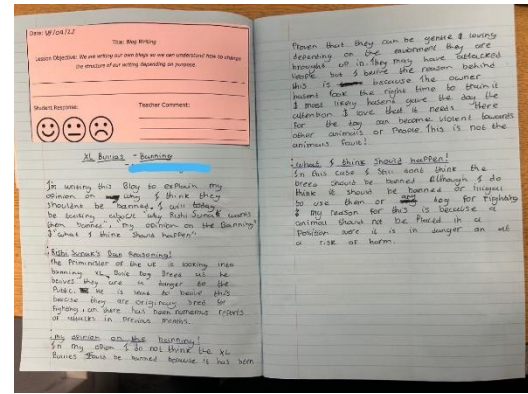 Date: 18/04/22
Title: Blog Writing
Lesson Objective: We are writing our own blogs so we can understand how to change
the structure of our writing depending on purpose.
Student Response:
Teacher Comment:
XL Bullies - Banning
I'm writing this Blog to explain my
opinion on why I think they
shouldnt be banned. I will today
be talking about why Rishi Sunak wants
them banned, my opinion on the Banning
& "what I think should happen"
Rishi Sunak's Reasoning!
the Priminister of the UK is looking into
banning XL Bullie Dog Breeds as he
belives they are a danger to the
Public. He is lead to belive this
because they are originaly bred for
fighting, on there has been numerous reports
of attacks in previous months.
my opinion on the banning!
In my opion I do not think the XL
Bullies should be banned because it has been
Proven that they can be gentle & loving
depending on the enviorment they are
brought up in. They may have attacked
people but I belive the reason behind
this is because the owner
hasent took the right time to train it
& most likely hasent gave the dog the
attention & love that it needs. Here
for the dog can become violent towards
other animals or People. This is not the
animals fault!
what I think should happen!
In this case I still dont think the
breed should be banned although I do
think it should be banned or illegal
to use them or any dog for Fighting
& my reason for this is because a
animal should not be Placed in a
Position were it is in danger an at
a risk of harm.